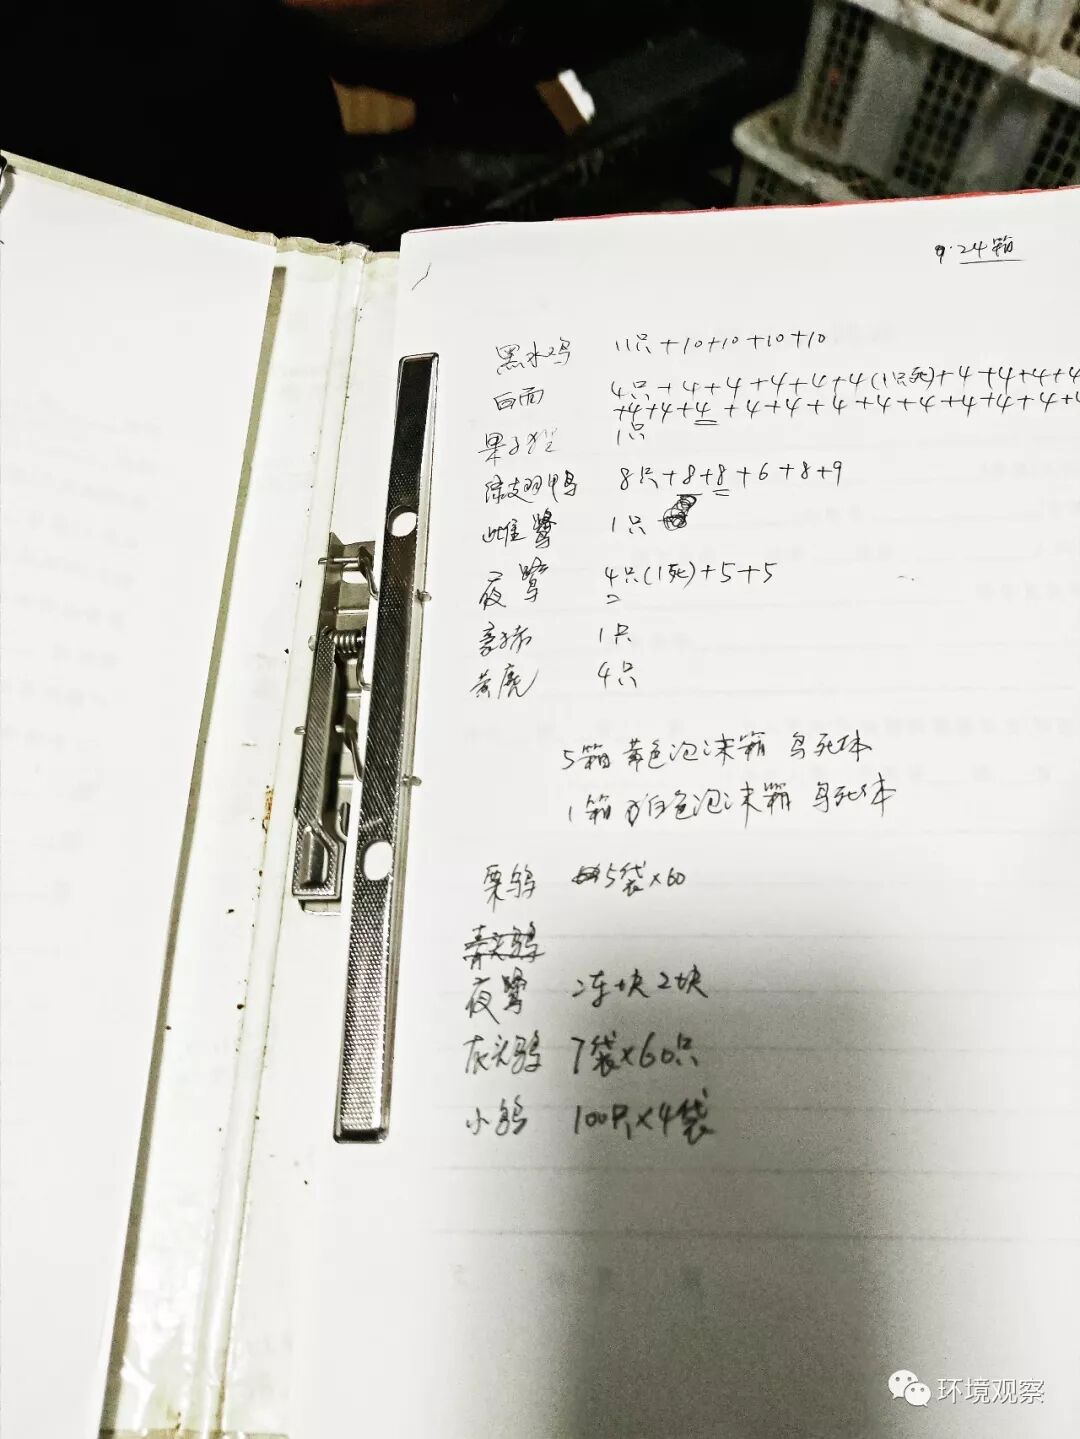 9.24箱
黑水鸡 11只+10+10+10+10
白面 4只+4+4+4+4+4(1只死)+4+4+4+4+4
+4+4+4+4+4+4+4+4+4+4+4+4+4
果子狸 1只
绿翅鸭 8只+8+8+6+8+9
雌鹭 1只
夜鹭 4只(1死)+5+5
豪猪 1只
黄麂 4只
5箱 黄色泡沫箱 鸟死体
1箱 白色泡沫箱 鸟死体
栗鹀 5袋×60
夜鹭 冻块2块
灰头鹀 7袋×60只
小鹀 100只×4袋
环境观察